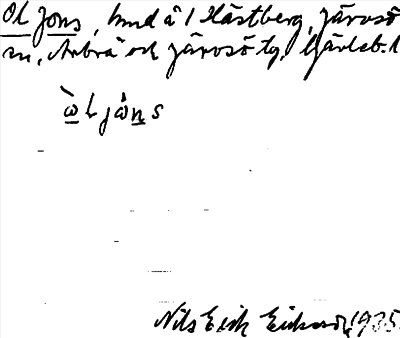 Ol Jons, hmd å 1 Hästberg, Järvsö
sn, Arbrå och Järvsö tg, Gävleb. l
ὼl jåns
Nils Erik Eriksson 1935